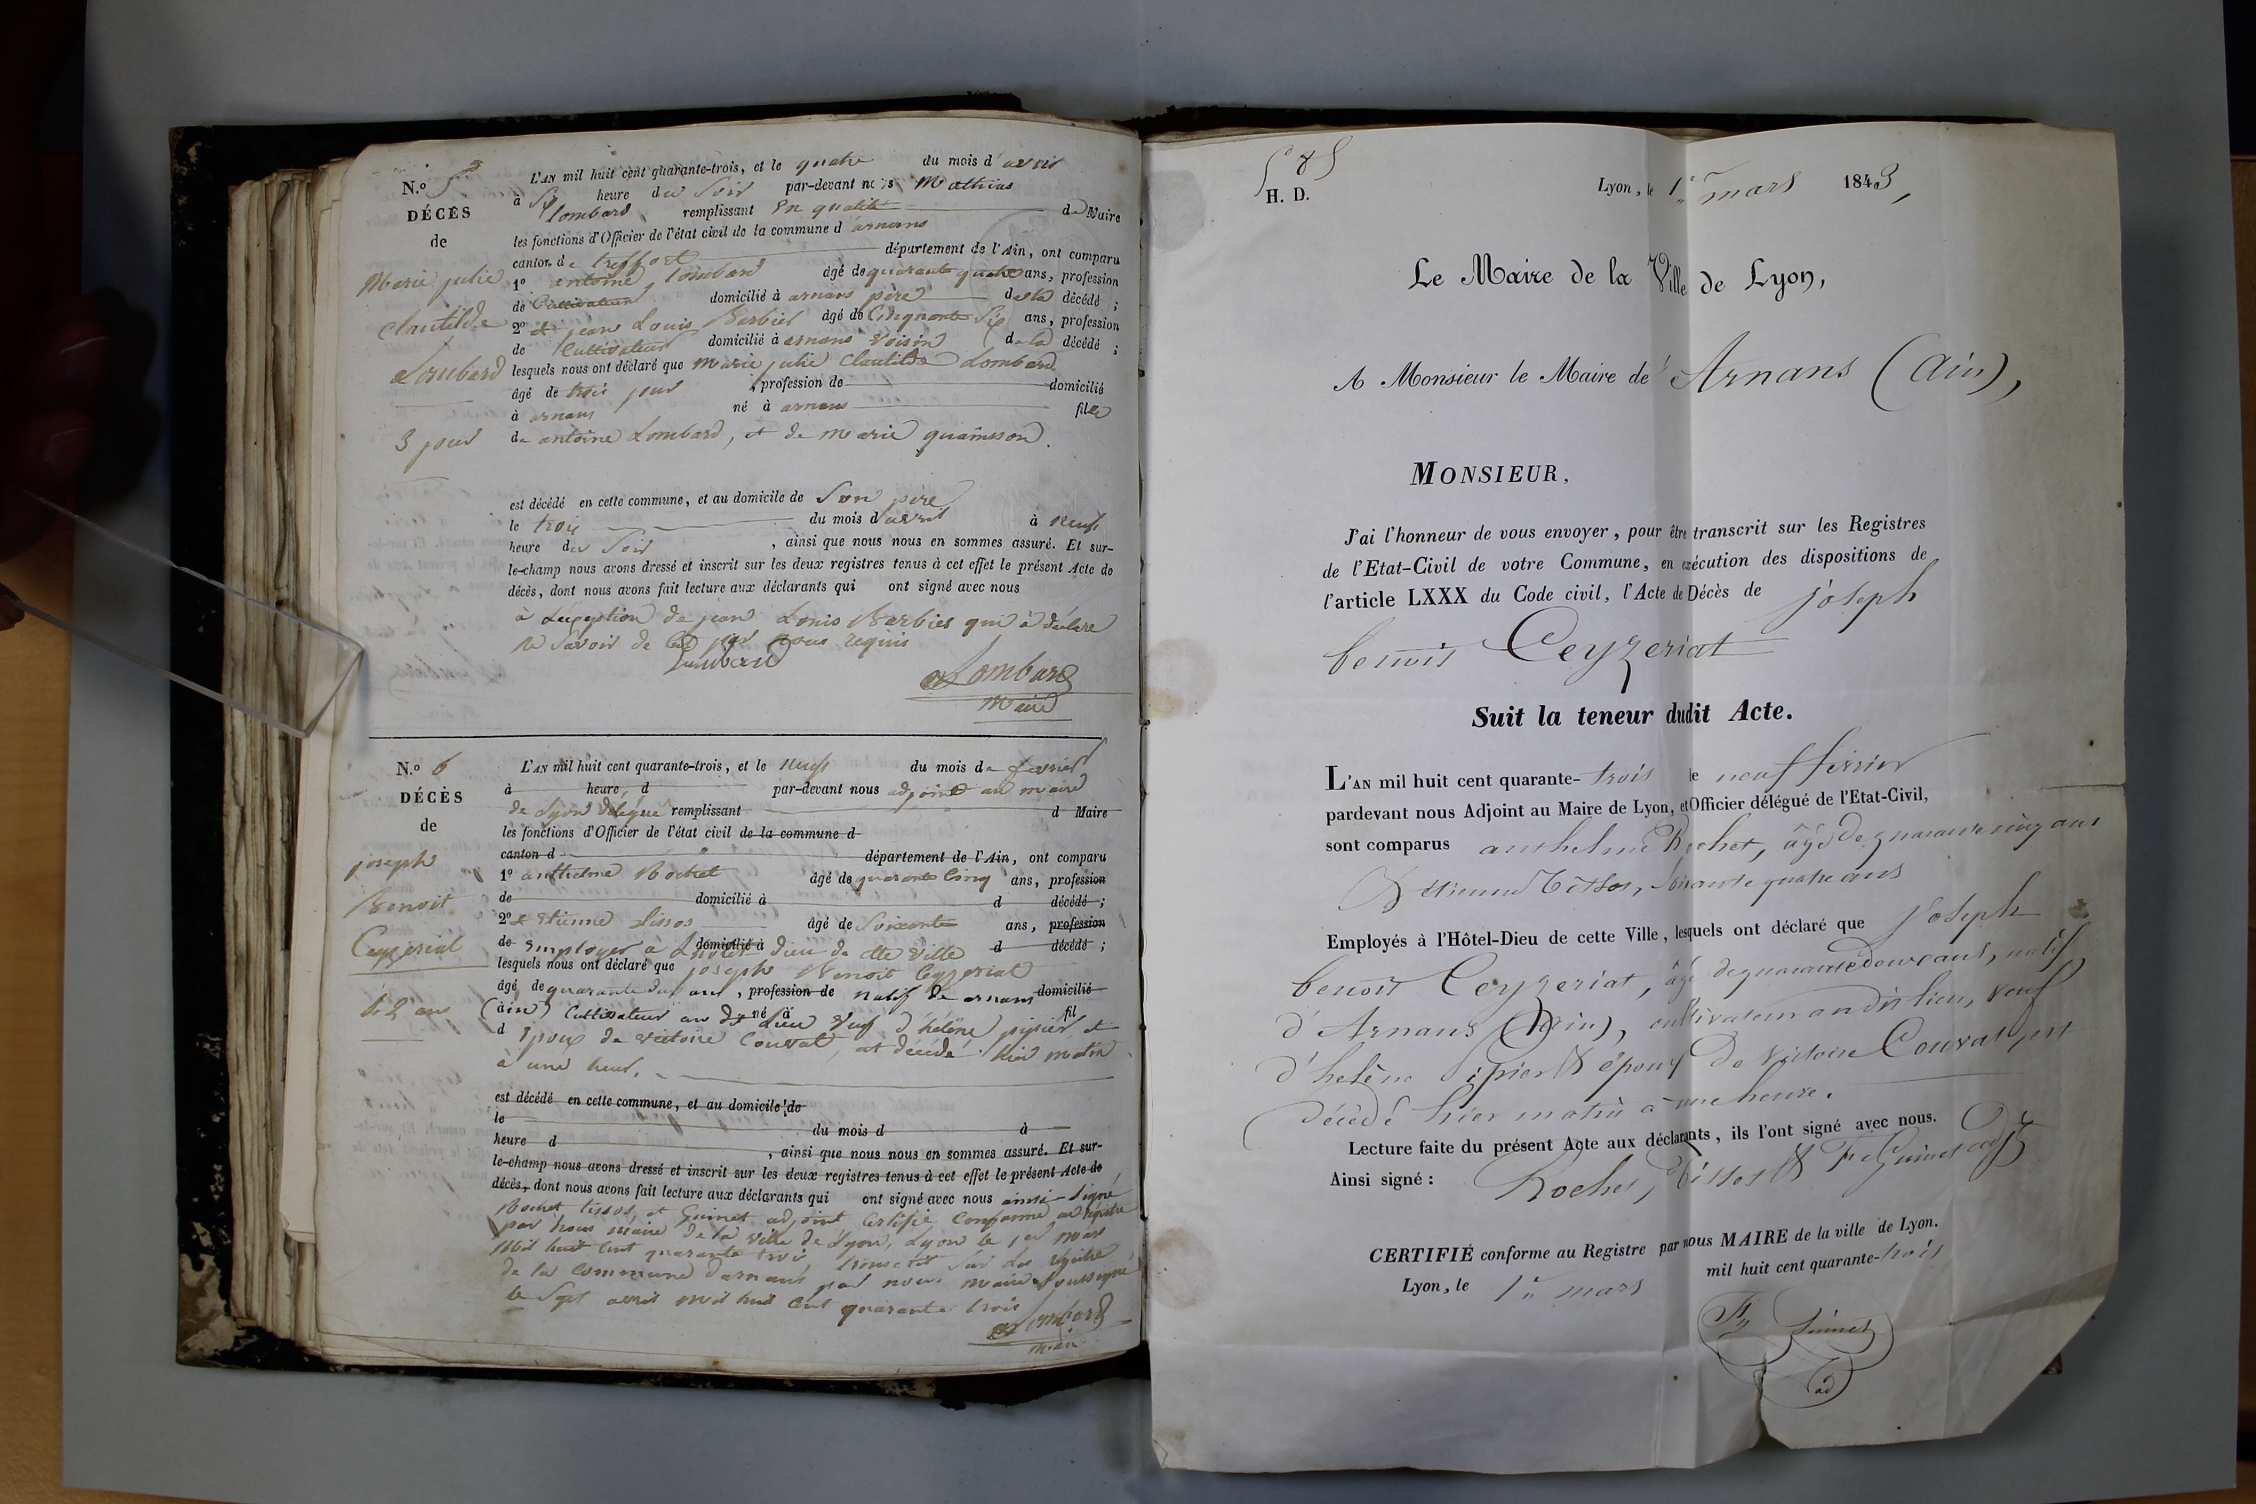 N.º 5
DÉCÈS
de
Marie julie
Clautilde
Lombard
3 jour
L'AN mil huit cent quarante-trois, et le quatre du mois d'avril
à six heure du Soir par-devant nous Mathias
Lombard remplissant En qualité de Maire
les fonctions d'Officier de l'état civil de la commune d'arnans
canton de treffort département de l'Ain, ont comparu
1º antoine Lombard âgé de quarante quatre ans, profession
de Cultivateur domicilié à arnans père de la décédé ;
2º et jean Louis Barbier âgé de Cinquante Six ans, profession
de Cultivateur domicilié à arnans voisin de la décédé ;
lesquels nous ont déclaré que Marie julie Clautilde Lombard
âgé de trois jour , profession de domicilié
à arnans né à arnans fille
de antoine Lombard, et de marie quainsson.
est décédé en cette commune, et au domicile de Son père
le trois du mois d'avril à neuf
heure du Soir , ainsi que nous nous en sommes assuré. Et sur-
le-champ nous avons dressé et inscrit sur les deux registres tenus à cet effet le présent Acte de
décès, dont nous avons fait lecture aux déclarants qui ont signé avec nous
à L'éxeption de jean Louis Barbier qui à déclaré
ne Savoir de Ce par nous requis
Lombard
Lombard
Maire
N.º 6
DÉCÈS
de
joseph
Benoit
Ceyzeriat
42 ans
L'AN mil huit cent quarante-trois, et le neuf du mois de fevrier
à heure, d par-devant nous adjoint au maire
de Lyon délégué remplissant d Maire
les fonctions d'Officier de l'état civil de la commune d
canton d département de l'Ain, ont comparu
1º anthelme Rochet âgé de quarante Cinq ans, profession
de domicilié à d décédé ;
2º et Etienne tissos âgé de Soixante ans, profession
de Employer a L'hotel domicilié à dieu de cette ville d décédé ;
lesquels nous ont déclaré que joseph Benoit Ceyzeriat
âgé de quarante deux ans , profession de natif de arnans domicilié
(ain) Cultivateur au dit Lieu né à veuf d'héléne pipier et fil
d Epoux de victoire Couvat, est décédé hier matin
à une heure.
est décédé en cette commune, et au domicile de
le du mois d à
heure d , ainsi que nous nous en sommes assuré. Et sur-
le-champ nous avons dressé et inscrit sur les deux registres tenus à cet effet le présent Acte de
décès, dont nous avons fait lecture aux déclarants qui ont signé avec nous ainsi Signé
Rochet tissos, et Guinet adjoint Certifié Conforme au registre
par nous maire de la ville de Lyon, Lyon le 1er mars
Mil huit Cent quarante trois transcrit Sur Les registre
de la Commune d'arnans par nous maire Soussigné
le Sept avril mil huit Cent quarante trois
Lombard
maire
585
H. D.
Lyon, le 1er mars 1843,
Le Maire de la Ville de Lyon,
A Monsieur le Maire de Arnans (Ain),
MONSIEUR,
J'ai l'honneur de vous envoyer, pour être transcrit sur les Registres
de l'Etat-Civil de votre Commune, en exécution des dispositions de
l'article LXXX du Code civil, l'Acte de Décès de joseph
benoit Ceyzeriat
Suit la teneur dudit Acte.
L'AN mil huit cent quarante-trois le neuf février
pardevant nous Adjoint au Maire de Lyon, et Officier délégué de l'Etat-Civil,
sont comparus anthelme Rochet, âgé de quarante cinq ans
& étienne Tissos, soixante quatre ans
Employés à l'Hôtel-Dieu de cette Ville, lesquels ont déclaré que joseph
benoit Ceyzeriat, âgé de quarante deux ans, natif
d'Arnans (Ain), cultivateur au dit lieu, veuf
d'helène Pipier & époux de victoire Couvat, est
décédé hier matin à une heure.
Lecture faite du présent Acte aux déclarants, ils l'ont signé avec nous.
Ainsi signé : Rochet, Tissos & Fs Guinet adjt
CERTIFIÉ conforme au Registre par nous MAIRE de la ville de Lyon.
Lyon, le 1er mars mil huit cent quarante-trois
Fs Guinet
ad